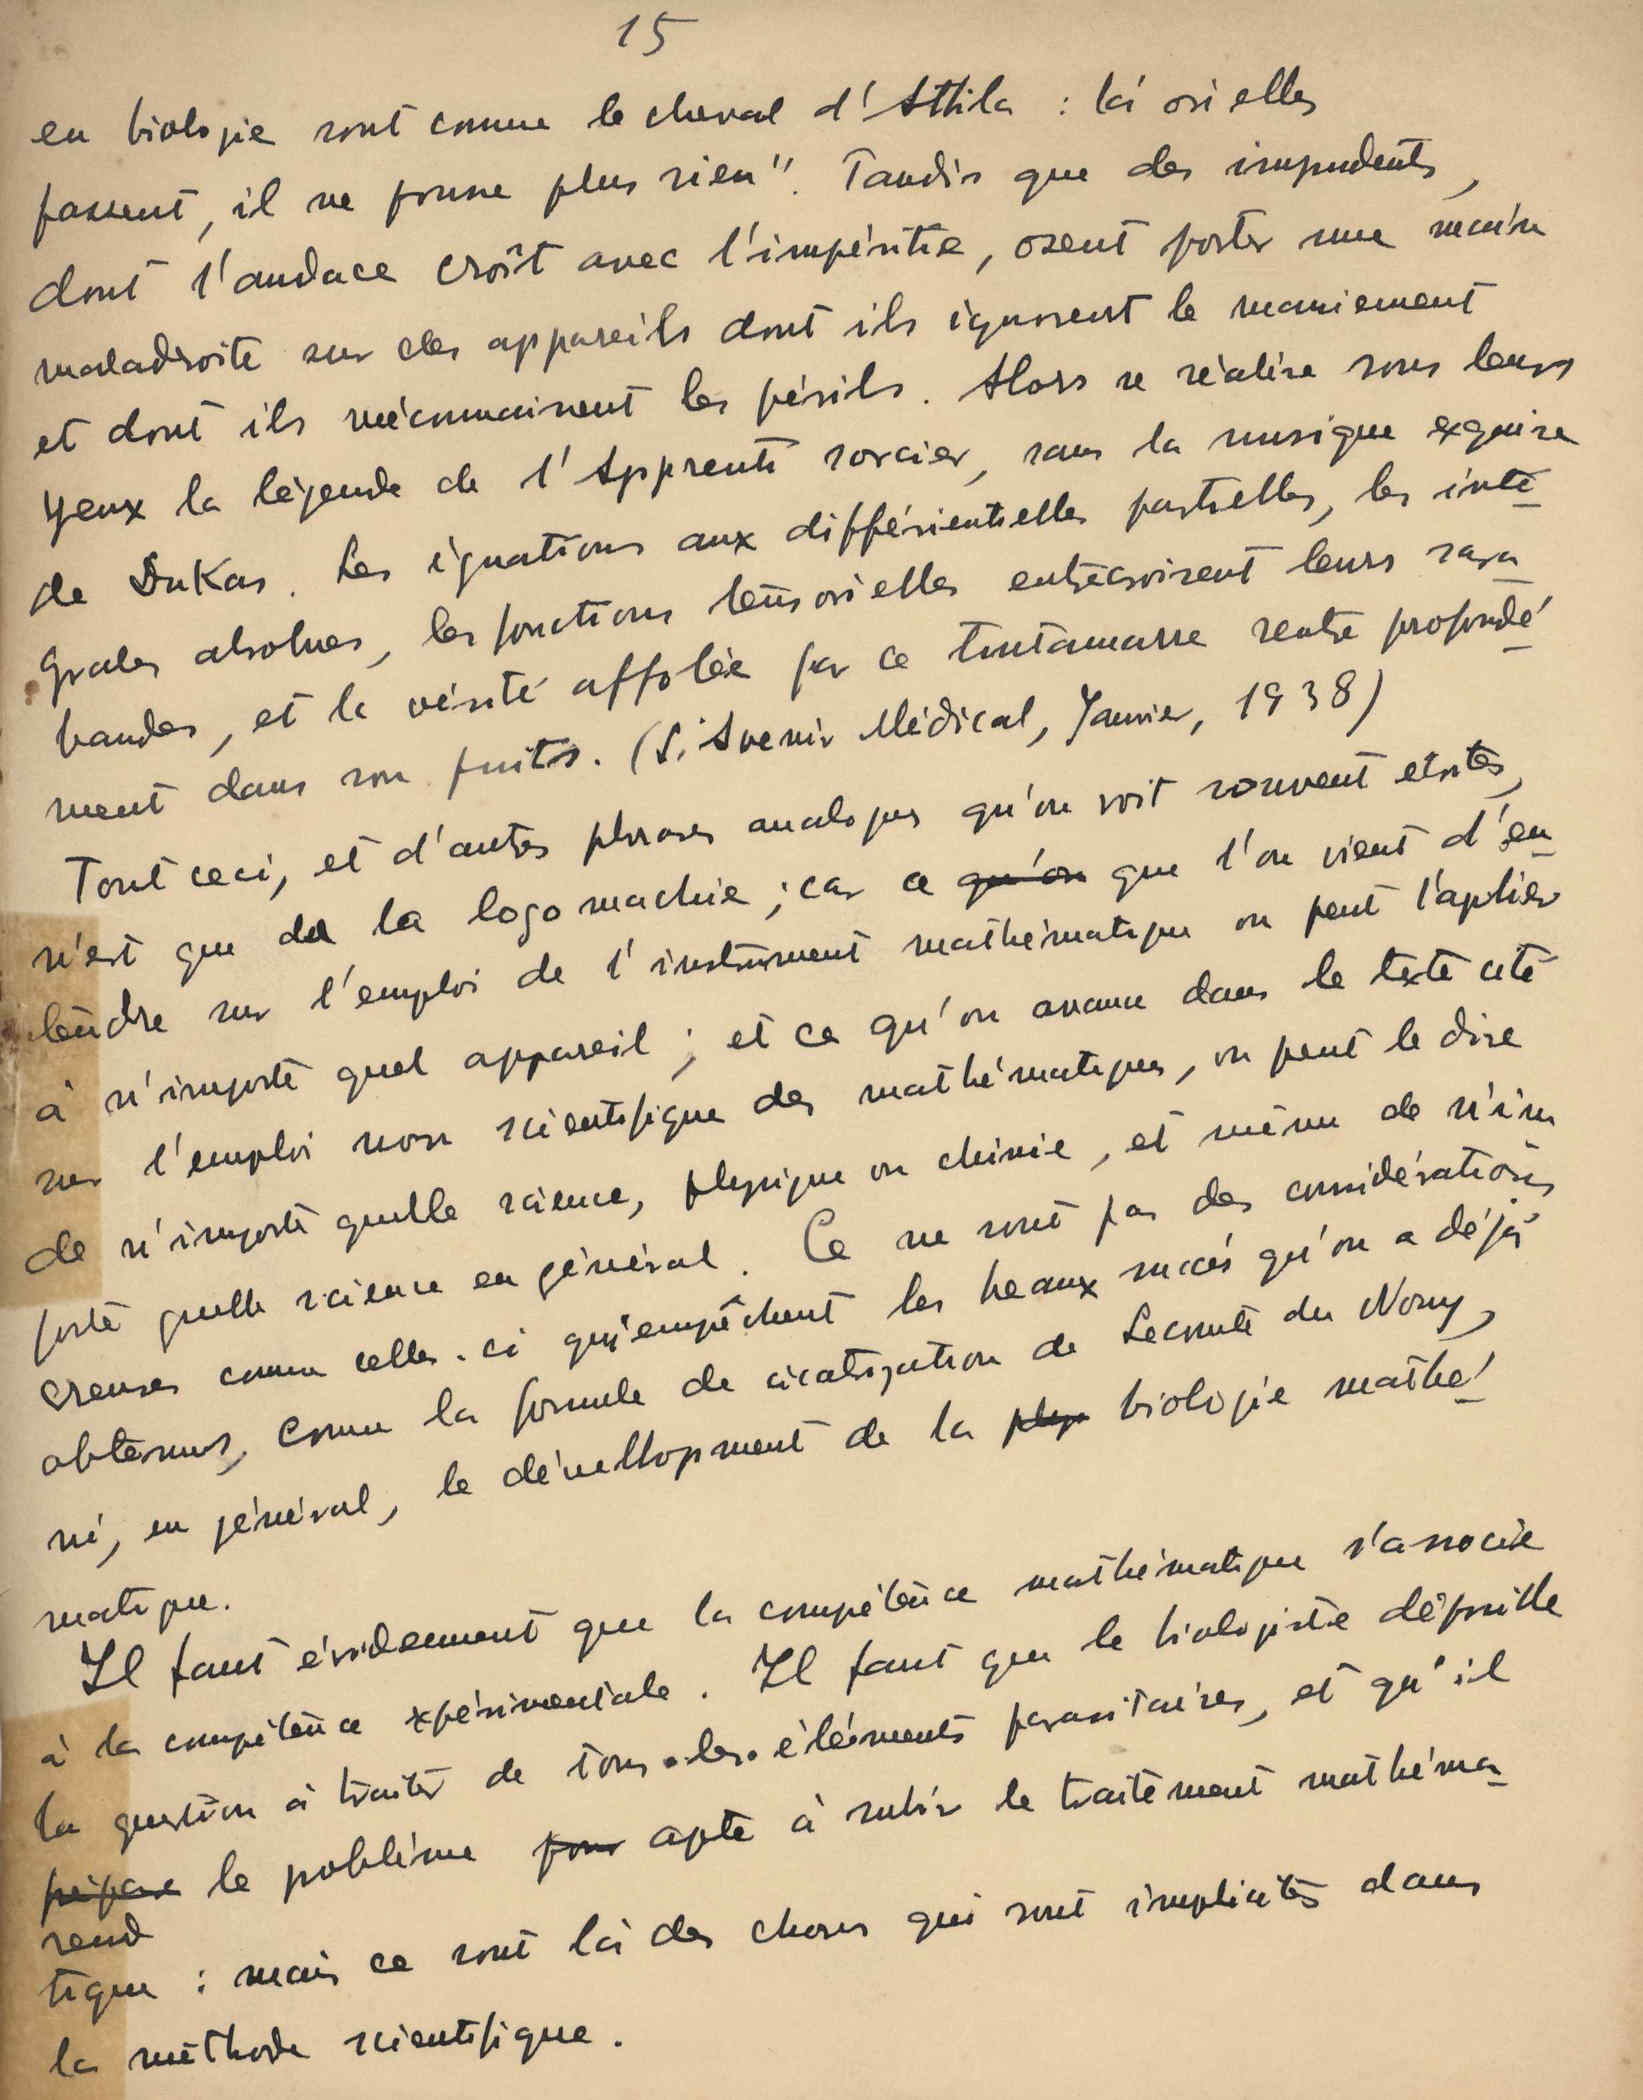 15
en biologie sont comme le cheval d'Attila : là où elles
passent, il ne pousse plus rien". Tandis que des impudents,
dont l'audace croît avec l'impéritie, osent porter une main
maladroite sur des appareils dont ils ignorent le maniement
et dont ils méconnaissent les périls. Alors se réalise sous leurs
yeux la légende de l'Apprenti sorcier, sans la musique exquise
de Dukas. Les équations aux différientielles partielles, les inté-
grales absolues, les fonctions tensorielles entrecroisent leurs sara-
bandes, et la vérité affolée par ce tintamarre rentre profondé-
ment dans son puits. (L'Avenir Médical, Janvier, 1938)
Tout ceci, et d'autres phrases analogues qu'on voit souvent
n'est que de la logomachie ; car ce qu'on que l'on vient d'en-
tendre sur l'emploi de l'instrument mathématique on peut l'aplier
à n'importe quel appareil ; et ce qu'on avance dans le texte cité
sur l'emploi non scientifique des mathématiques, on peut le dire
de n'importe quelle science, physique ou chimie, et même de n'im
porte quelle science en général. Ce ne sont pas des considérations
creuses comme celles-ci qui empêchent les beaux succés qu'on a déjà
obtenus, comme la formule de cicatrization de Lecomte du Nouy,
ni, en général, le dévellopment de la phys biologie mathé-
matique.
Il faut évidemment que la compétence mathématique s'associe
à la compétence expérimentale. Il faut que le biologiste dépouille
la question à traiter de tous les éléments parasitaires, et qu'il
prépare le poblème pour apte à subir le traitement mathéma-
rend
tique : mais ce sont là des choses qui sont implicites dans
la méthode scientifique.